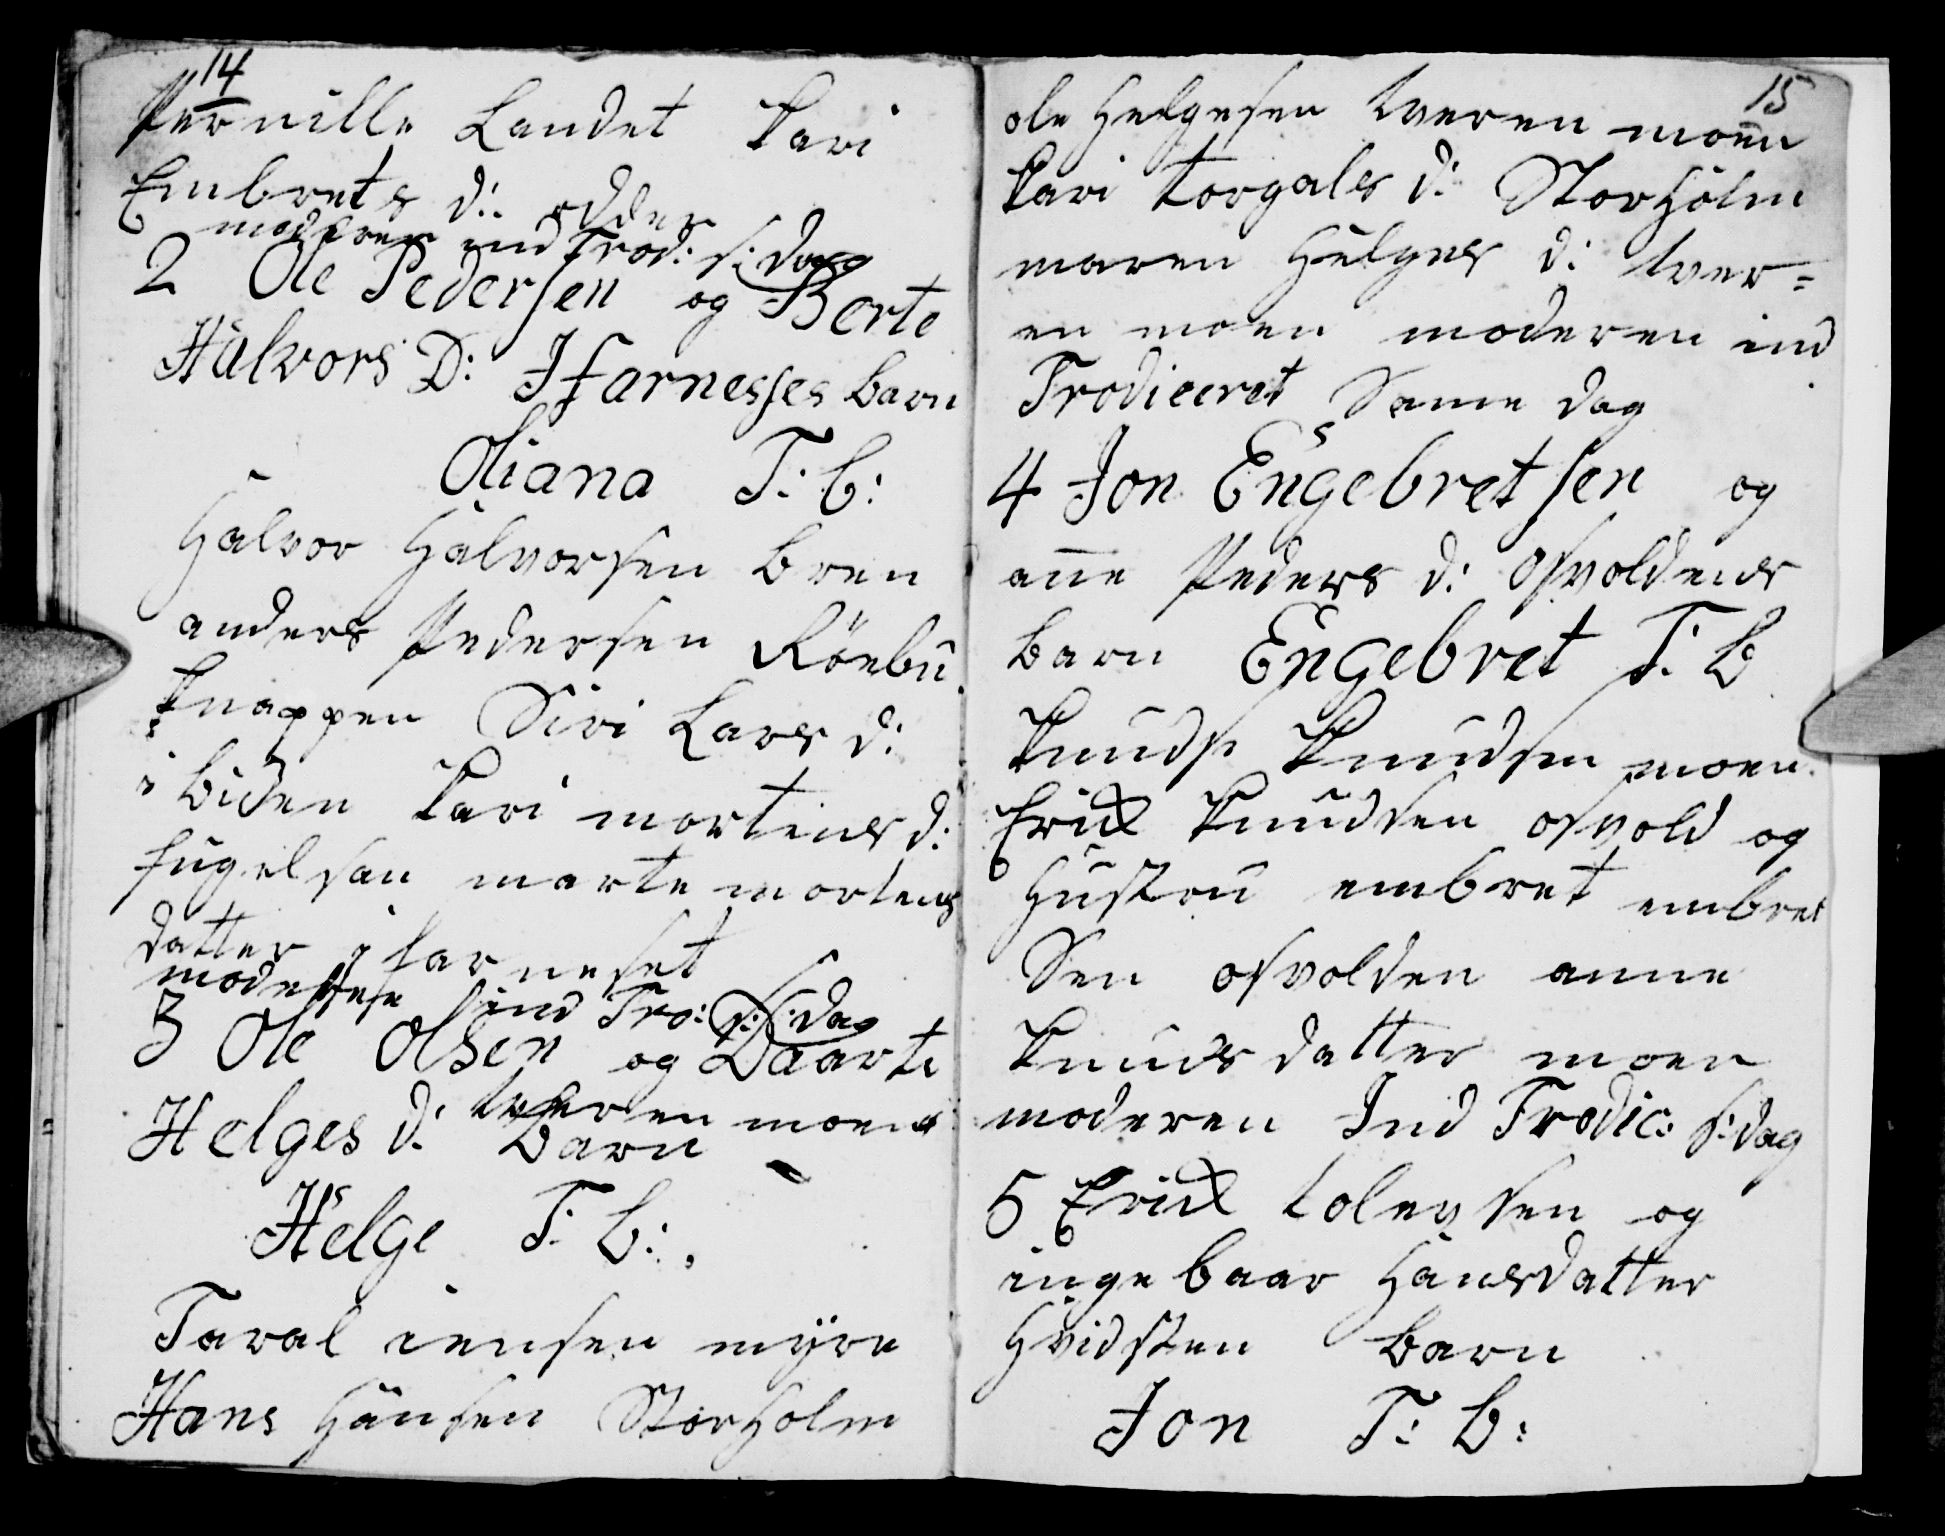 14
Pernille Landet Kari
Embrets d: odder
moderen ind Trod: s: dag
2 Ole Pedersen og Berte
Halvors D: Ifarnesses barn
Oliana T: b:
Halvor Halvorsen bren
anders Pedersen Rönbu
knappen Siri Lars d:
i biden Kari mortens d:
fugelsan marte mortens
datter i farneset
moderen ind Tro: s: dag
3 Ole Olsen og Daarte
Helges d: tveren moen
barn
Helge T: b:
Taral iensen myre
Hans Hansen Storholm
15
ole Helgesen tveren moen
Kari Torgals d: Storholm
maren Helges d: tver=
en moen moderen ind
Trodiceret Same dag
4 Jon Engebretsen og
anne Peders d: osvoldens
barn Engebret T: b
Knud Knudsen moen
Erick Knudsen osvold og
Hustru embret embret
Sen osvolden anne
Knuds datter moen
moderen Ind Trodic: s: dag
5 Erick tolevsen og
ingebaar Hansdatter
Hvidsten barn
Jon T: b: